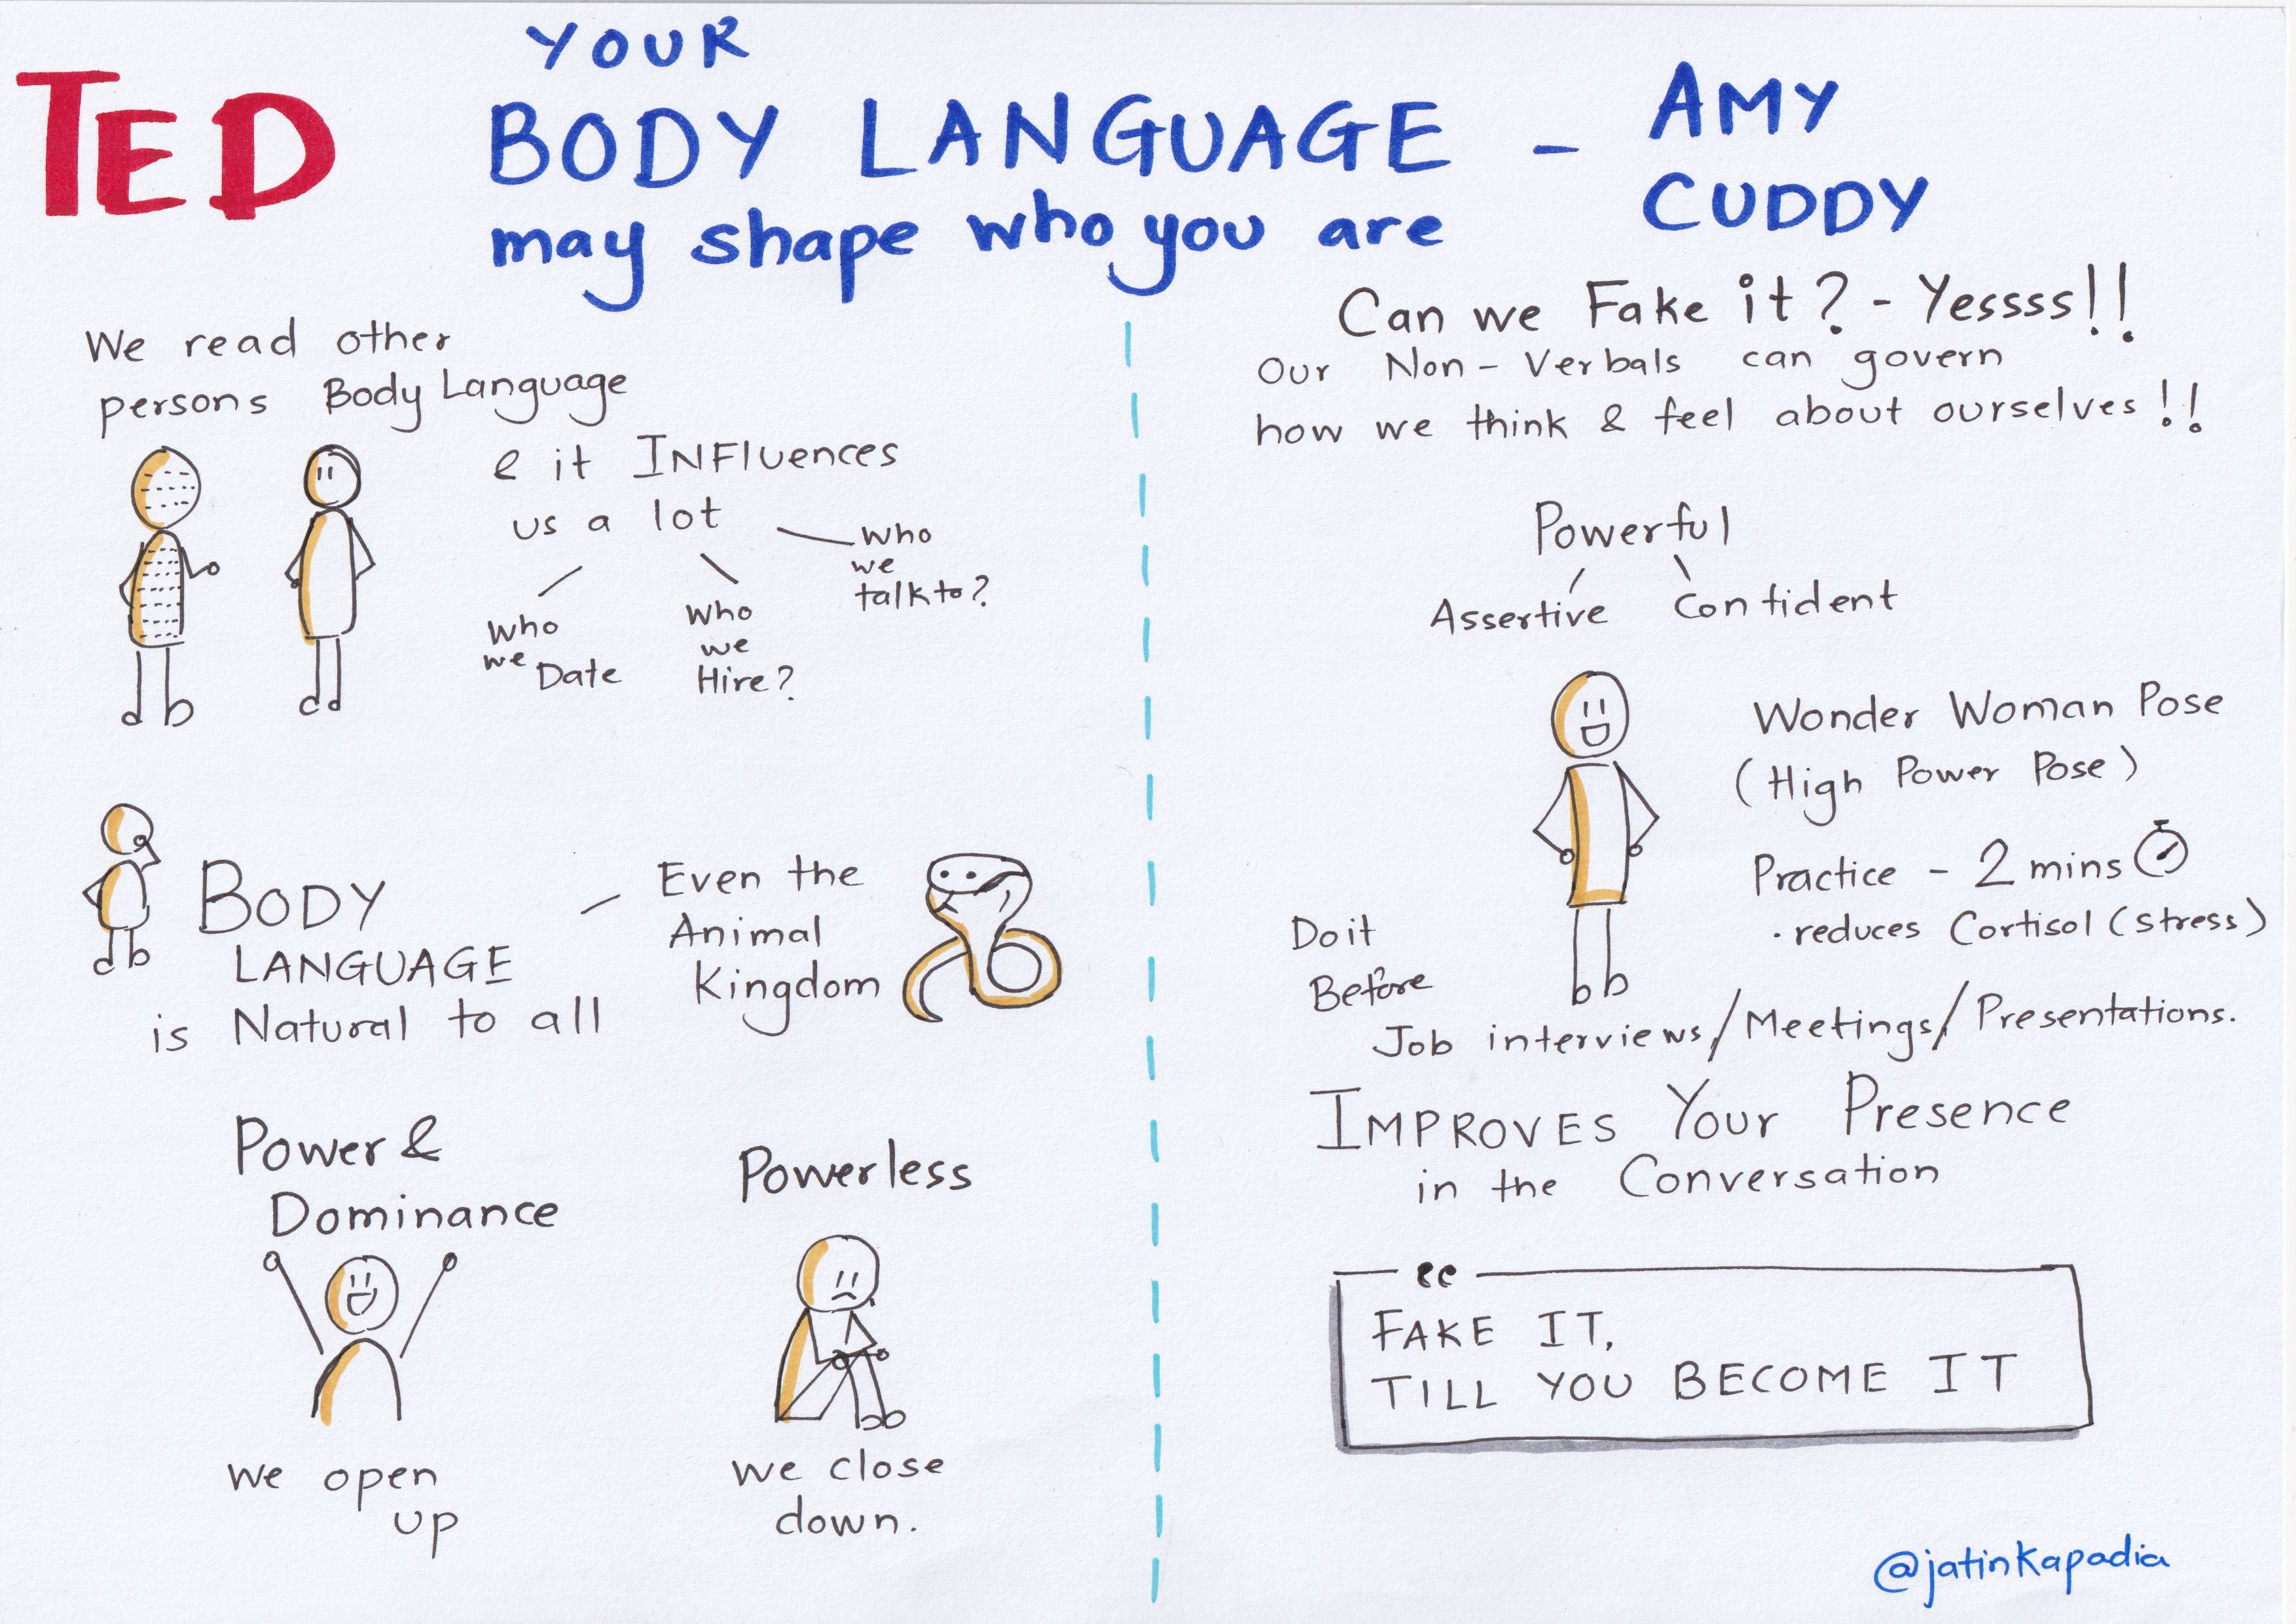 TED
YOUR
BODY LANGUAGE -
may shape who you are
AMY
CUDDY
We read other
persons Body Language
& it INFluences
us a lot
Who
we Date
Who
we
Hire?
Who
we
talk to?
BODY
LANGUAGE
is Natural to all
Even the
Animal
Kingdom
Power &
Dominance
we open
up
Powerless
we close
down.
Can we Fake it? - Yessss!!
Our Non-Verbals can govern
how we think & feel about ourselves!!
Powerful
Assertive
Confident
Wonder Woman Pose
(High Power Pose)
Practice - 2 mins
. reduces Cortisol (stress)
Do it
Before
Job interviews/Meetings/Presentations.
IMPROVES Your Presence
in the Conversation
“
FAKE IT,
TILL YOU BECOME IT
@jatinkapadia